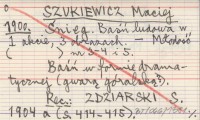 SZUKIEWICZ Maciej
1900. Śnieg. Baśń ludowa w
1 akcie, 3 obrazach. – Młodość
( ) nr 3-4 i 5.
Baśń w formie drama-
tycznej (gwarą góralską).
Rec.: ZDZIARSKI S.
1904 a (s. 414-415)